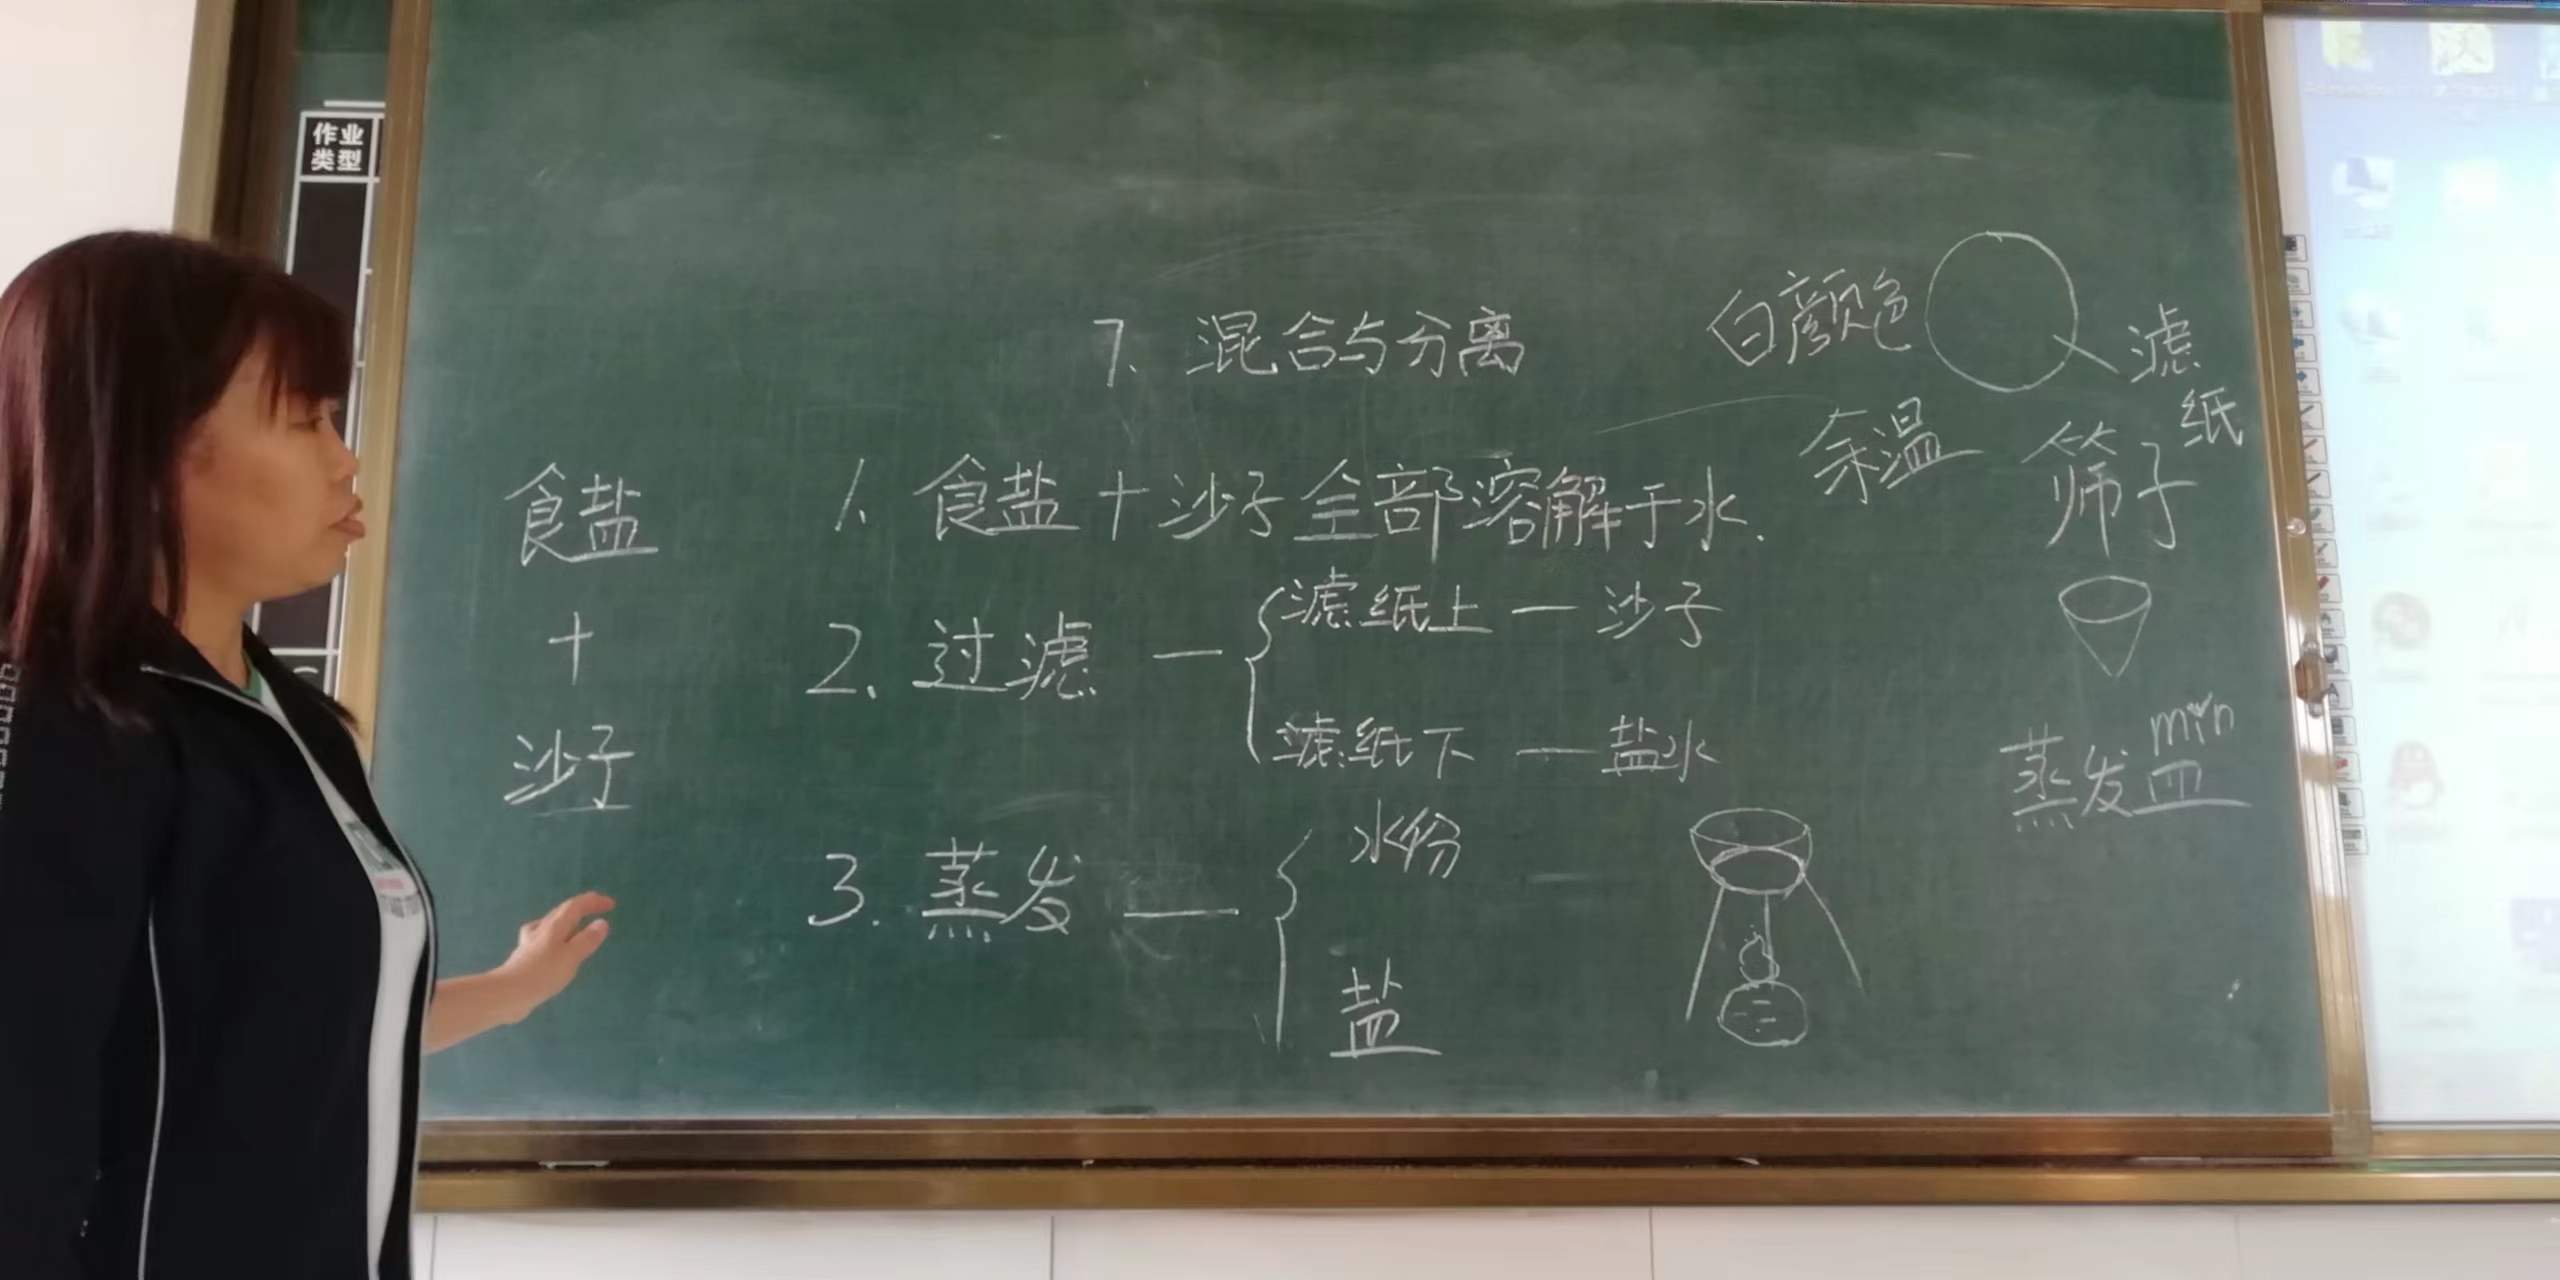 作业
类型
7、混合与分离
白颜色
滤
纸
余温
筛子
食盐
+
沙子
1、食盐+沙子全部溶解于水.
2、过滤—{滤纸上—沙子
滤纸下—盐水
3.蒸发—{水份
盐
min
蒸发皿